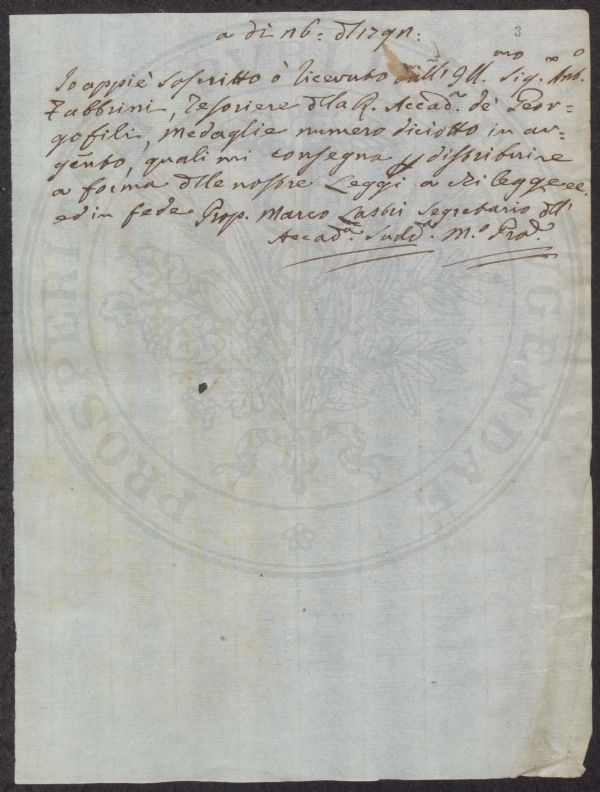 3
a dì 16: dl 1791:
Io appiè soscritto ò ricevuto dall' Ill.mo Sig.re Ant.o
Fabbrini, Tesoriere dlla R. Accad.a de' Geor=
gofili, Medaglie numero diciotto in ar=
gento, quali mi consegna p distribuire
a forma dlle nostre Leggi a chi legge ec.
ed in fede Prop. Marco Lastri Segretario dll'
Accad.a Sudd.a M.o Pro.a
PROSPERI PUBLICAE AUGENDAE